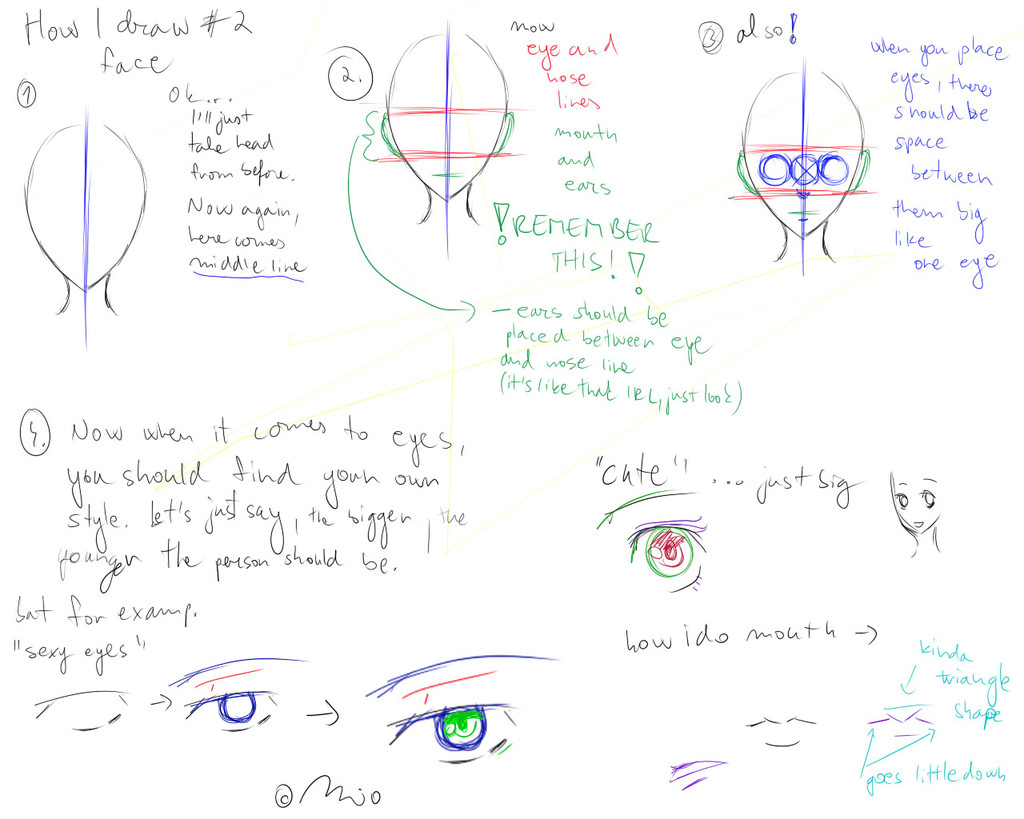 How I draw #2
face
1
Ok...
I'll just
take head
from before.
Now again,
here comes
middle line
2.
now
eye and
nose
lines
mouth
and
ears
!REMEMBER
THIS!!
- ears should be
placed between eye
and nose line
(it's like that IRL, just look)
3 also!
when you place
eyes, there
should be
space
between
them big
like
one eye
4. Now when it comes to eyes,
you should find your own
style. Let's just say, the bigger, the
younger the person should be.
but for examp.
"sexy eyes"
"cute" ... just big
how i do mouth →
kinda
triangle
shape
goes little down
© Mijo